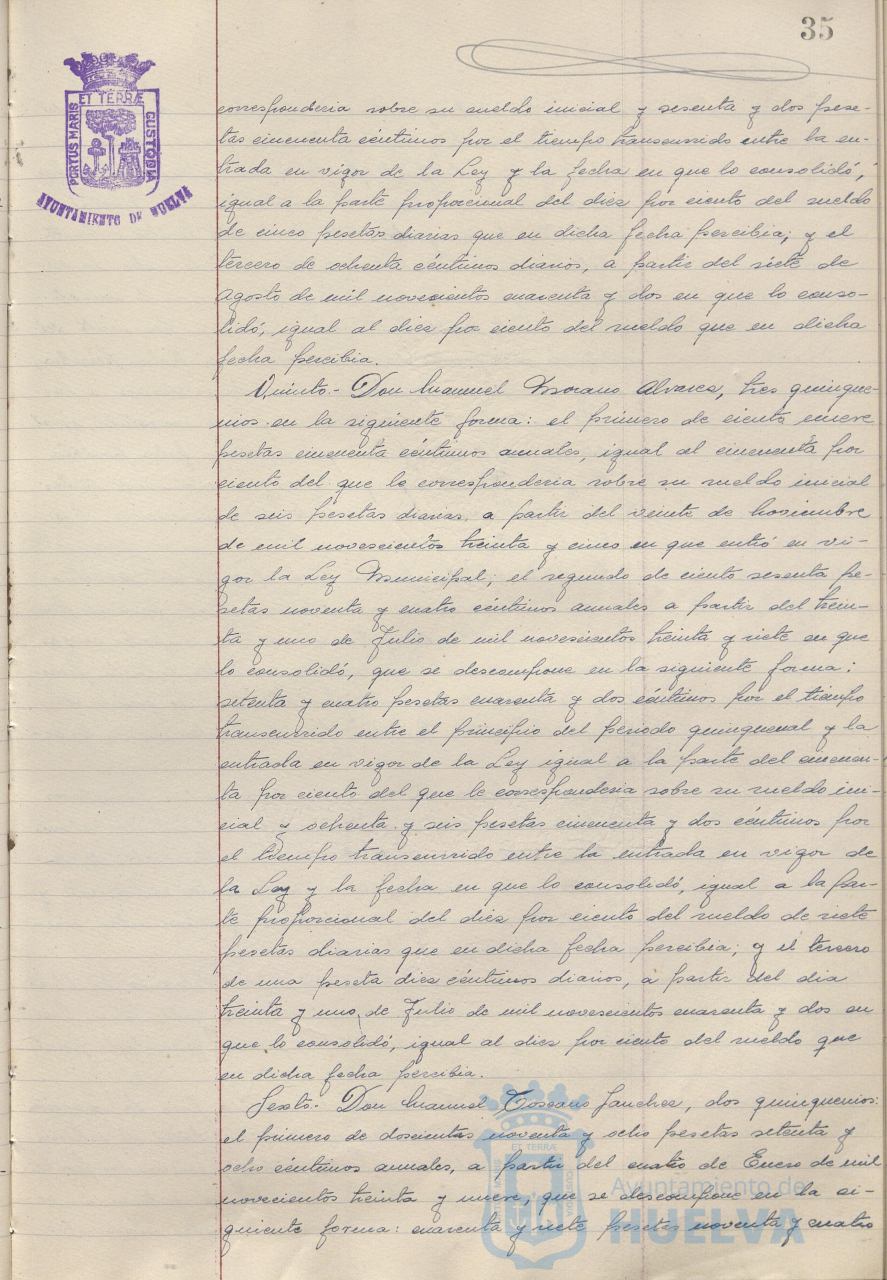 35
ET TERRÆ
PORTUS MARIS
CUSTODIA
AYUNTAMIENTO DE HUELVA
corresponderia sobre su sueldo inicial y sesenta y dos pese-
tas cincuenta céntimos por el tiempo transcurrido entre la en-
trada en vigor de la Ley y la fecha en que lo consolidó,
igual a la parte proporcional del diez por ciento del sueldo
de cinco pesetas diarias que en dicha fecha percibia; y el
tercero de ochenta céntimos diarios, a partir del siete de
Agosto de mil novecientos cuarenta y dos en que lo conso-
lidó, igual al diez por ciento del sueldo que en dicha
fecha percibia.
Quinto.- Don Manuel Morano Alvarez, tres quinque-
nios en la siguiente forma: el primero de ciento nueve
pesetas cincuenta céntimos anuales, igual al cincuenta por
ciento del que le corresponderia sobre su sueldo inicial
de seis pesetas diarias a partir del veinte de Noviembre
de mil novescientos treinta y cinco en que entró en vi-
gor la Ley Municipal; el segundo de ciento sesenta pe-
setas noventa y cuatro céntimos anuales a partir del trein-
ta y uno de Julio de mil novescientos treinta y siete en que
lo consolidó, que se descompone en la siguiente forma:
setenta y cuatro pesetas cuarenta y dos céntimos por el tiempo
transcurrido entre el principio del periodo quinquenal y la
entrada en vigor de la Ley igual a la parte del cincuen-
ta por ciento del que le corresponderia sobre su sueldo ini-
cial y ochenta y seis pesetas cincuenta y dos céntimos por
el tiempo transcurrido entre la entrada en vigor de
la Ley y la fecha en que lo consolidó, igual a la par-
te proporcional del diez por ciento del sueldo de siete
pesetas diarias que en dicha fecha percibia; y el tercero
de una peseta diez céntimos diarios, a partir del dia
treinta y uno de Julio de mil novescientos cuarenta y dos en
que lo consolidó, igual al diez por ciento del sueldo que
en dicha fecha percibia.
Sexto.- Don Manuel Toscano Sanchez, dos quinquenios:
el primero de doscientas noventa y ocho pesetas setenta y
ocho céntimos anuales, a partir del cuatro de Enero de mil
novecientos treinta y nueve, que se descompone en la si-
guiente forma: cuarenta y siete pesetas noventa y cuatro
ET TERRÆ
CUSTODIA
Ayuntamiento de
HUELVA